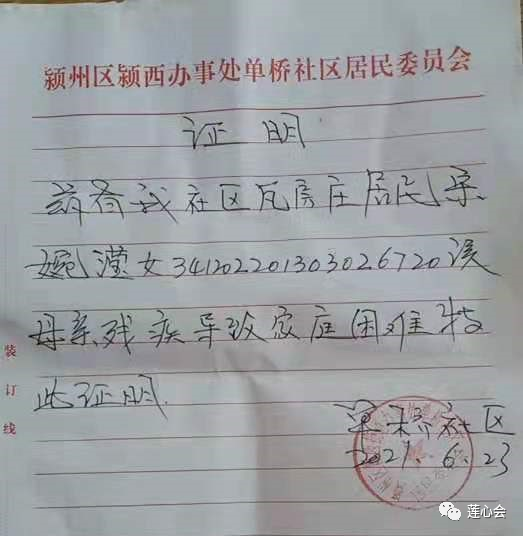 颍州区颍西办事处单桥社区居民委员会
证明
兹有我社区瓦房庄居民宋
婉滢女341202201303026720该
母亲残疾导致家庭困难特
此证明.
单桥社区
2021.6.23
装订线
莲心会